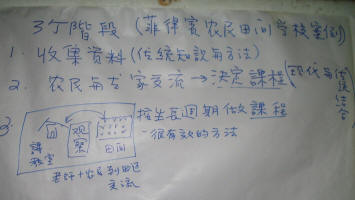 3个階段(菲律賓农民田间学校案例)
1. 收集資料(传統知識与方法)
2. 农民与专家交流→决定課程(現代与传統结合)
3.
按生長週期做課程
-很有效的方法
課教室
观察
田间
老師+农民到田边交流